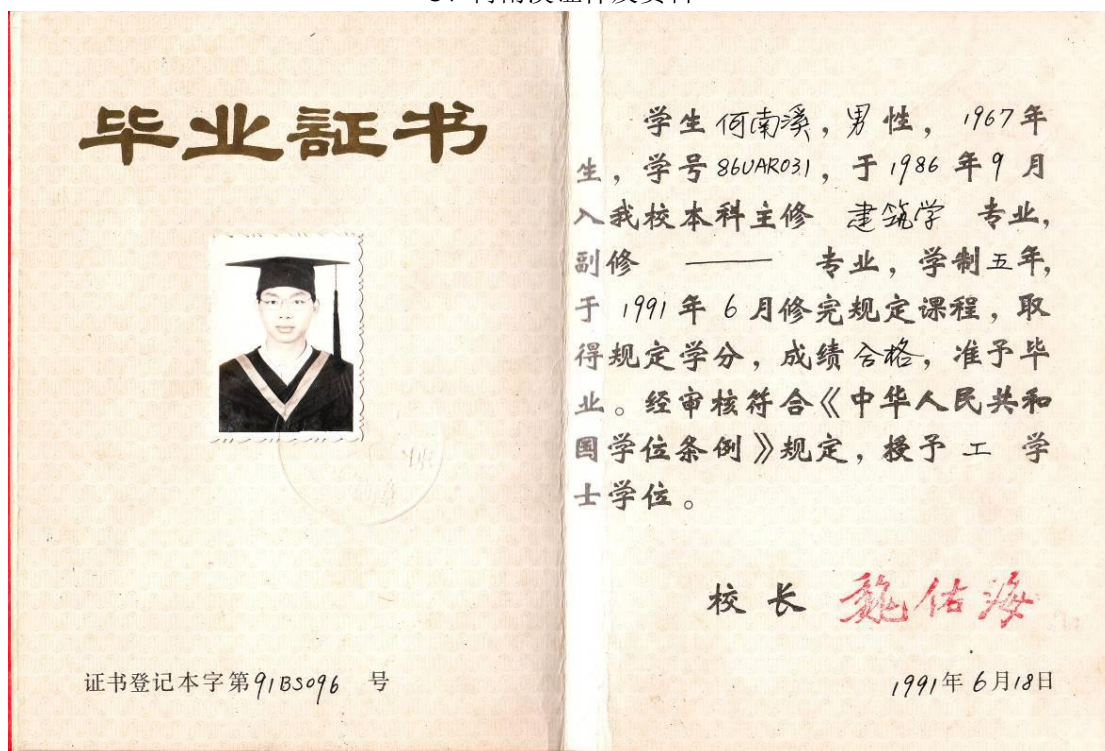 毕业証书
证书登记本字第91BS096 号
学生 何南溪, 男性, 1967年
生, 学号 86UAR031, 于1986年9月
入我校本科主修 建筑学 专业,
副修 —— 专业, 学制五年,
于 1991年 6月修完规定课程, 取
得规定学分, 成绩合格, 准予毕
业。经审核符合《中华人民共和
国学位条例》规定, 授予 工 学
士学位。
校长 魏佑海
1991年6月18日